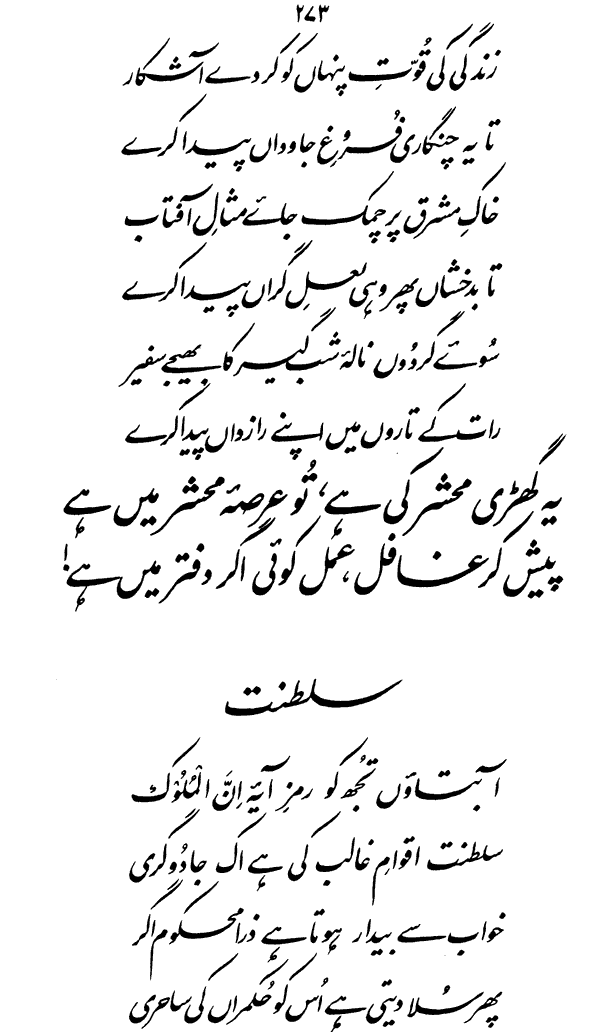 ۲۷۳
زندگی کی قُوّتِ پنہاں کو کر دے آشکار
تا یہ چنگاری فُروغِ جاوداں پیدا کرے
خاکِ مشرق پر چمک جائے مثالِ آفتاب
تا بدخشاں پھر وہی لعلِ گراں پیدا کرے
سُوئے گردُوں نالۂ شب گیر کا بھیجے سفیر
رات کے تاروں میں اپنے رازداں پیدا کرے
یہ گھڑی محشر کی ہے، تُو عرصۂ محشر میں ہے
پیش کر غافل، عمل کوئی اگر دفتر میں ہے!
سلطنت
آ بتاؤں تُجھ کو رمزِ آیۂ اِنَّ الْمُلُوْک
سلطنت اقوامِ غالب کی ہے اک جادُوگری
خواب سے بیدار ہوتا ہے ذرا محکوم اگر
پھر سُلا دیتی ہے اُس کو حُکمراں کی ساحری